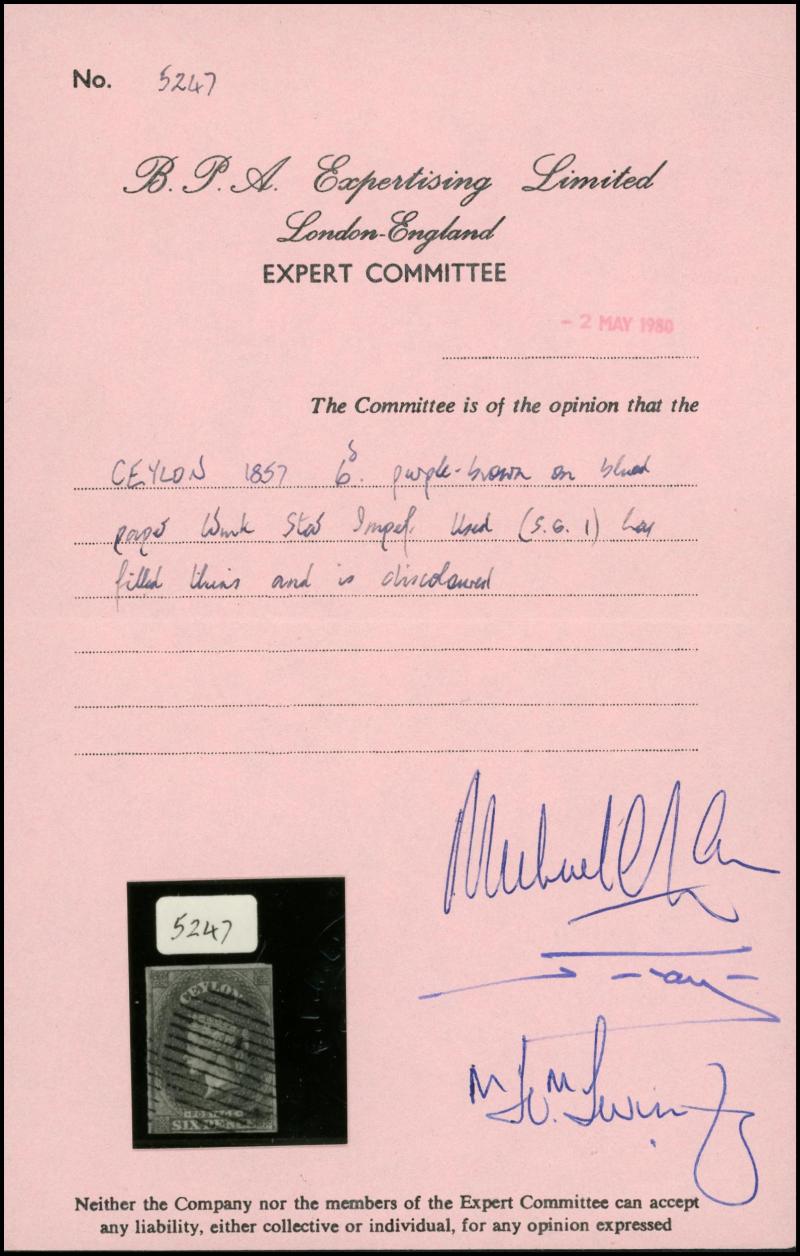 No. 5247
B. P. A. Expertising Limited
London-England
EXPERT COMMITTEE
- 2 MAY 1980
The Committee is of the opinion that the
CEYLON 1857 6d. purple-brown on blued
paper Wmk Star Imperf. Used (S.G. 1) has
filled thins and is discoloured
5247
CEYLON
POSTAGE
SIX PENCE
Neither the Company nor the members of the Expert Committee can accept
any liability, either collective or individual, for any opinion expressed